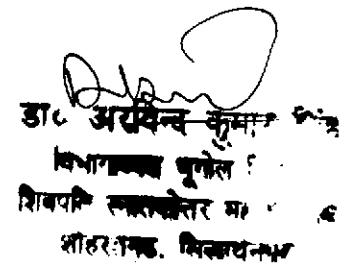 डा० अरविन्द कुमार सिंह
विभागाध्यक्ष भूगोल
शिवपति स्नातकोत्तर
शोहरतगढ़, सिद्धार्थनगर